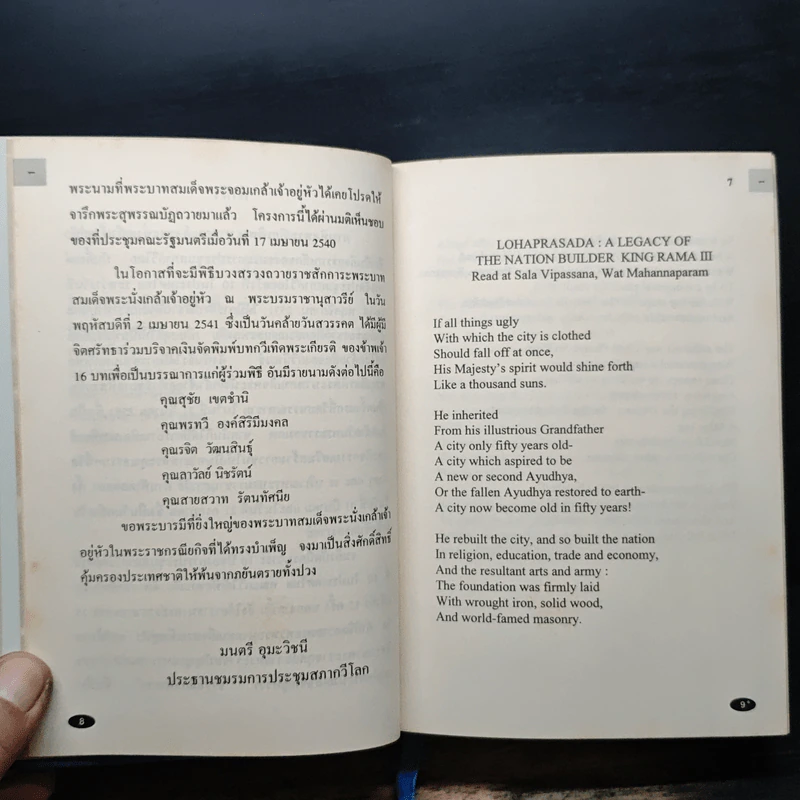 พระนามที่พระบาทสมเด็จพระจอมเกล้าเจ้าอยู่หัวได้เคยโปรดให้
จารึกพระสุพรรณบัฏถวายมาแล้ว โครงการนี้ได้ผ่านมติเห็นชอบ
ของที่ประชุมคณะรัฐมนตรีเมื่อวันที่ 17 เมษายน 2540
ในโอกาสที่จะมีพิธีบวงสรวงถวายราชสักการะพระบาท
สมเด็จพระนั่งเกล้าเจ้าอยู่หัว ณ พระบรมราชานุสาวรีย์ ในวัน
พฤหัสบดีที่ 2 เมษายน 2541 ซึ่งเป็นวันคล้ายวันสวรรคต ได้มีผู้มี
จิตศรัทธาร่วมบริจาคเงินจัดพิมพ์บทกวีเทิดพระเกียรติ ของข้าพเจ้า
16 บทเพื่อเป็นบรรณาการแก่ผู้ร่วมพิธี อันมีรายนามดังต่อไปนี้คือ
คุณสุชัย เขตชำนิ
คุณพรทวี องค์สิริมีมงคล
คุณรจิต วัฒนสินธุ์
คุณลาวัลย์ นิชรัตน์
คุณสายสวาท รัตนทัศนีย
ขอพระบารมีที่ยิ่งใหญ่ของพระบาทสมเด็จพระนั่งเกล้าเจ้า
อยู่หัวในพระราชกรณียกิจที่ได้ทรงบำเพ็ญ จงมาเป็นสิ่งศักดิ์สิทธิ์
คุ้มครองประเทศชาติให้พ้นจากภยันตรายทั้งปวง
มนตรี อุมะวิชนี
ประธานชมรมการประชุมสภากวีโลก
8
LOHAPRASADA : A LEGACY OF
THE NATION BUILDER KING RAMA III
Read at Sala Vipassana, Wat Mahannaparam
If all things ugly
With which the city is clothed
Should fall off at once,
His Majesty's spirit would shine forth
Like a thousand suns.
He inherited
From his illustrious Grandfather
A city only fifty years old-
A city which aspired to be
A new or second Ayudhya,
Or the fallen Ayudhya restored to earth-
A city now become old in fifty years!
He rebuilt the city, and so built the nation
In religion, education, trade and economy,
And the resultant arts and army :
The foundation was firmly laid
With wrought iron, solid wood,
And world-famed masonry.
9